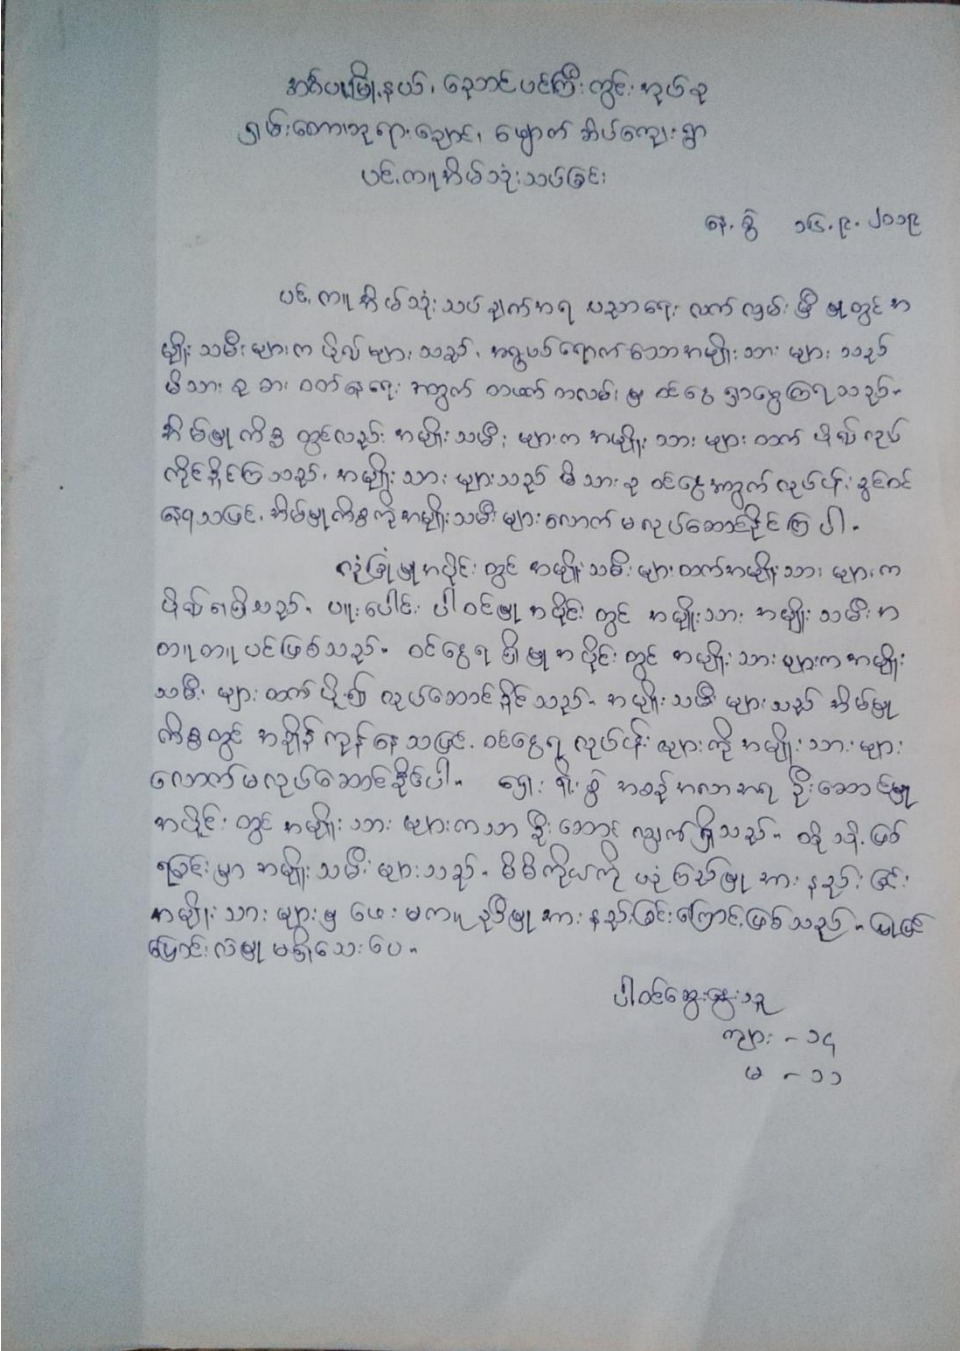 အင်္ဂပူမြို့နယ်၊ ညောင်ပင်ကြီးကွင်းအုပ်စု
ရှမ်းတောဘုရားချောင်း၊ မျောက်အိပ်ကျေးရွာ
ပင့်ကူအိမ်သုံးသပ်ခြင်း
နေ့စွဲ ၁၆.၉.၂၀၁၉
ပင့်ကူအိမ်သုံးသပ်ချက်အရ ပညာရေးလက်လှမ်းမှီမှုတွင်အ
မျိုးသမီးများကပိုလိုများသည်၊ အရွယ်ရောက်သောအမျိုးသားများသည်
မိသားစုစားဝတ်နေရေးအတွက် တဖက်တလမ်းမှဝင်ငွေရှာဖွေကြရသည်။
အိမ်မှုကိစ္စတွင်လည်းအမျိုးသမီးများကအမျိုးသားများထက်ပို၍လုပ်
ကိုင်နိုင်ကြသည်၊ အမျိုးသားများသည်မိသားစုဝင်ငွေအတွက်လုပ်ငန်းခွင်ဝင်
နေရသဖြင့်၊ အိမ်မှုကိစ္စကိုအမျိုးသမီးများလောက်မလုပ်ဆောင်နိုင်ကြပါ။
လုံခြုံမှုအပိုင်းတွင်အမျိုးသမီးများထက်အမျိုးသားများက
ပို၍ရရှိသည်။ ပူးပေါင်းပါဝင်မှုအပိုင်းတွင်အမျိုးသားအမျိုးသမီးအ
တူတူပင်ဖြစ်သည်။ ဝင်ငွေရရှိမှုအပိုင်းတွင်အမျိုးသားများကအမျိုး
သမီးများထက်ပို၍လုပ်ဆောင်နိုင်သည်။ အမျိုးသမီးများသည်အိမ်မှု
ကိစ္စတွင်အချိန်ကုန်နေသဖြင့်၊ ဝင်ငွေရလုပ်ငန်းများကိုအမျိုးသားများ
လောက်မလုပ်ဆောင်နိုင်ပေါ။ ရှေးရိုးစွဲအစဉ်အလာအရဦးဆောင်မှု
အပိုင်းတွင်အမျိုးသားများကသာဦးဆောင်လျှက်ရှိသည်။ ထိုသို့ဖြစ်
ရခြင်းမှာအမျိုးသမီးများသည်။ မိမိကိုယ်ကိုယုံကြည်မှုအားနည်းခြင်း
အမျိုးသားများမှဖေးမကူညီမှုအားနည်းခြင်းကြောင့်ဖြစ်သည်။ ပြုပြင်
ပြောင်းလဲမှုမရှိသေးပေ။
ပါဝင်ဆွေးနွေးသူ
ကျား - ၁၄
မ - ၁၁